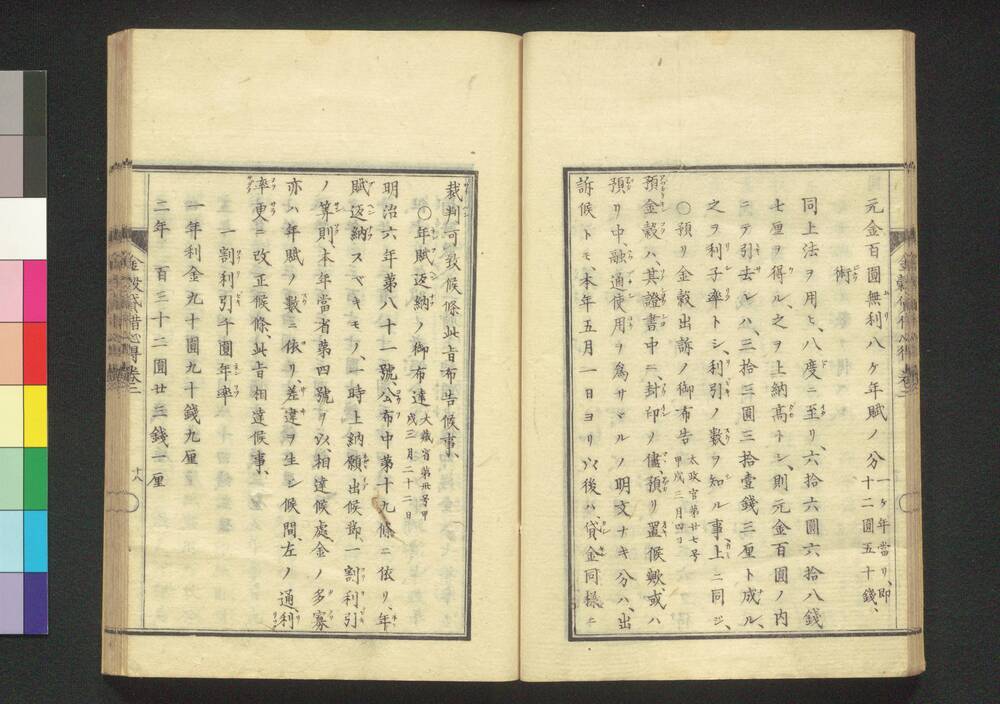 元金百圓無利八ケ年賦ノ分十二圓五十錢、一ケ年當リ、即
術
同上法ヲ用ヒ、八度ニ至リ、六拾六圓六拾八錢
七厘ヲ得ル、之ヲ上納髙トシ、則元金百圓ノ内
ニテ引去レハ、三拾三圓三拾壹錢三厘ト成ル、
之ヲ利子率トシ、利引ノ数ヲ知ル事、上ニ同シ、
○預リ金穀出訴ノ御布告 太政官第廿七号 甲戌三月四日
預金穀ハ、其證書中ニ、封印ノ儘預リ置候歟、或ハ
預リ中、融通使用ヲ爲サヾルノ明文ナキ分ハ、出
訴候トモ、本年五月一日ヨリ以後ハ、貸金同様ニ
裁判可致候條、此旨布告候事、
○年賦返納ノ御布達 大藏省第卅号甲 戌三月二十二日
明治六年第八十一號、公布中第十九條ニ依リ、年
賦返納スベキモノ、一時上納願出候節、一割利引
ノ算則、本年當省第四號ヲ以、相達候處、金ノ多寡
亦ハ年賦ノ數ニ依リ、差違ヲ生シ候間、左ノ通、利
率更ニ改正候條、此旨相達候事、
一割利引千圓年率
一年利金九十圓九十錢九厘
二年 百三十二圓廿三錢一厘
金穀貸借心得卷二
十八